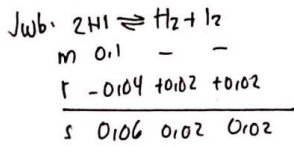 Jwb. 2HI ⇌ H2 + I2
m 0,1 - -
r -0,04 +0,02 +0,02
s 0,06 0,02 0,02